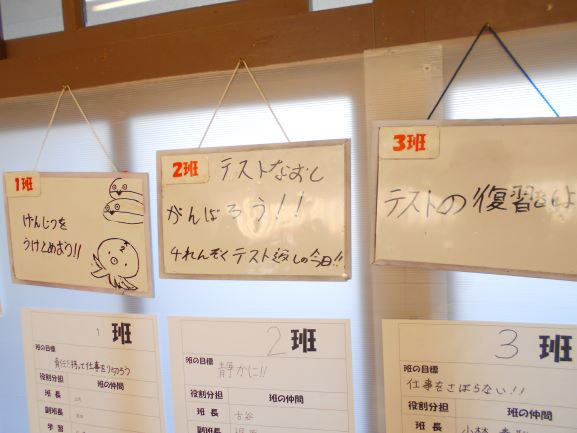 1班
げんじつを
うけとめよう!!
2班
テストなおし
がんばろう!!
4れんぞくテスト返しの今日!!
3班
テストの復習をしよ
1 班
班の目標
責任を持って仕事をしよう
役割分担 班の仲間
班長
副班長
学習
2 班
班の目標
静かに!!
役割分担 班の仲間
班長 古谷
副班長
3 班
班の目標
仕事をさぼらない!!
役割分担 班の仲間
班長 小林
副班長